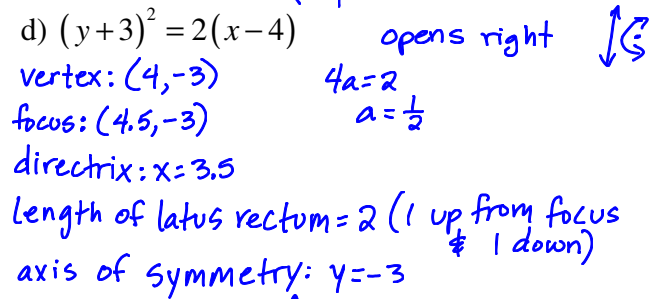 d) (y+3)² = 2(x−4) opens right
vertex: (4,-3) 4a=2
focus: (4.5,-3) a=1/2
directrix: x=3.5
length of latus rectum = 2 (1 up from focus
& 1 down)
axis of symmetry: y=-3